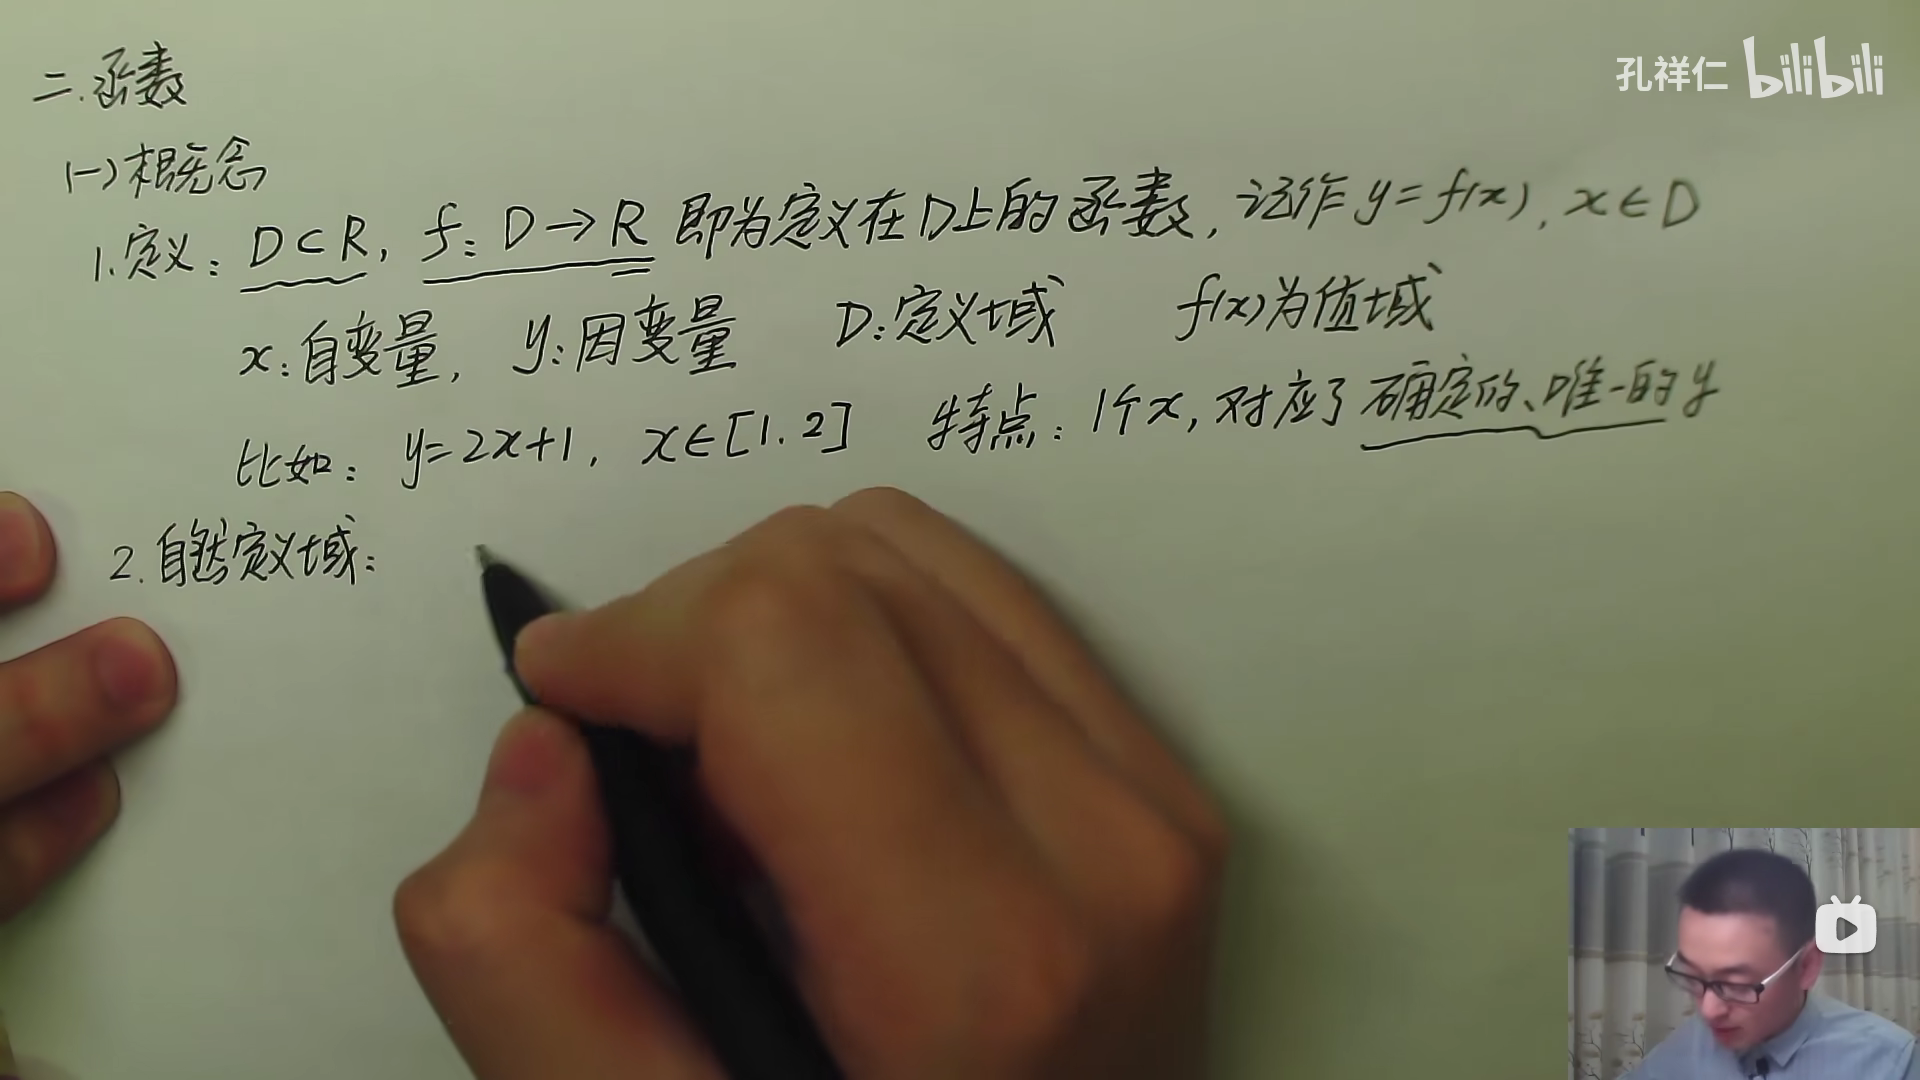 孔祥仁 bilibili
二.函数
(一)概念
1.定义：D⊂R, f: D→R 即为定义在D上的函数, 记作 y=f(x), x∈D
x:自变量, y:因变量 D:定义域 f(x)为值域
比如: y=2x+1, x∈[1.2] 特点: 1个x, 对应了确定的、唯一的y
2.自然定义域: